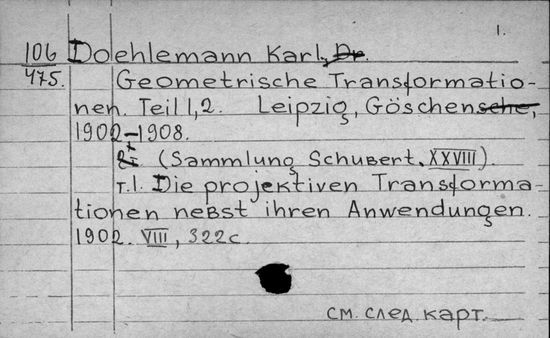 1.
106 Doehlemann Karl, Dr.
475. Geometrische Transformatio-
nen. Teil 1,2. Leipzig, Göschensche,
1902-1908.
(Sammlung Schubert, XXVIII).
т.1. Die projektiven Transforma-
tionen nebst ihren Anwendungen.
1902. VIII, 322с.
см. след. карт.